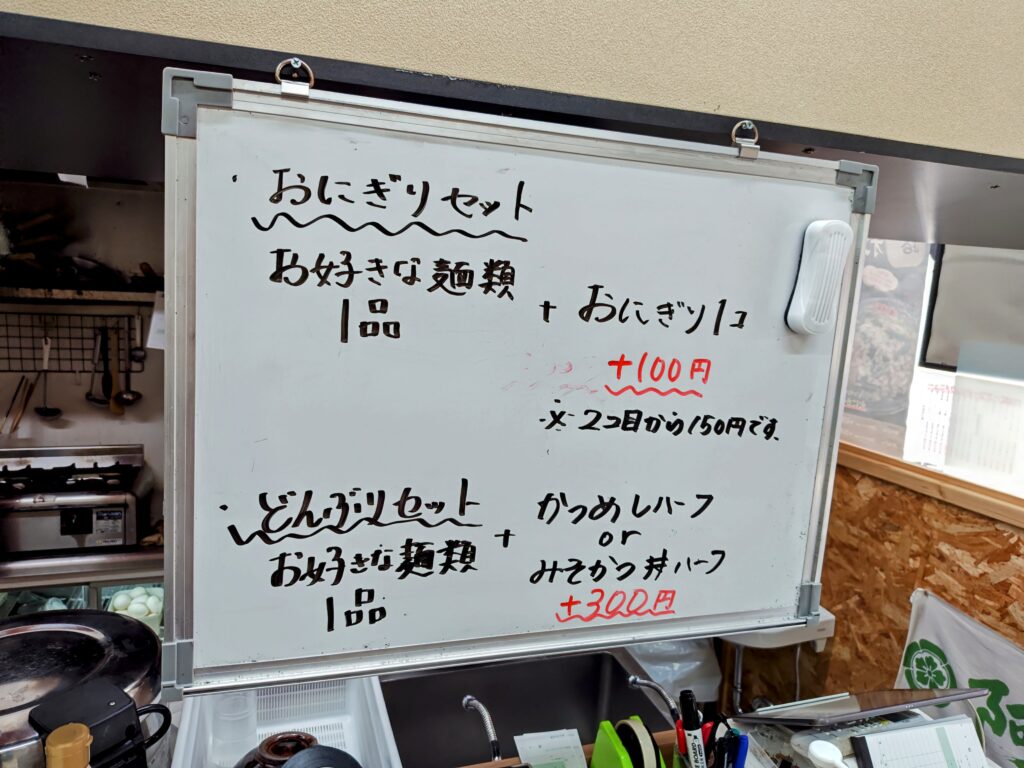 ・おにぎりセット
お好きな麺類
1品
+ おにぎり1コ
+100円
※2コ目から150円です、
・どんぶりセット
お好きな麺類
1品
+
かつめしハーフ
or
みそかつ丼ハーフ
+300円